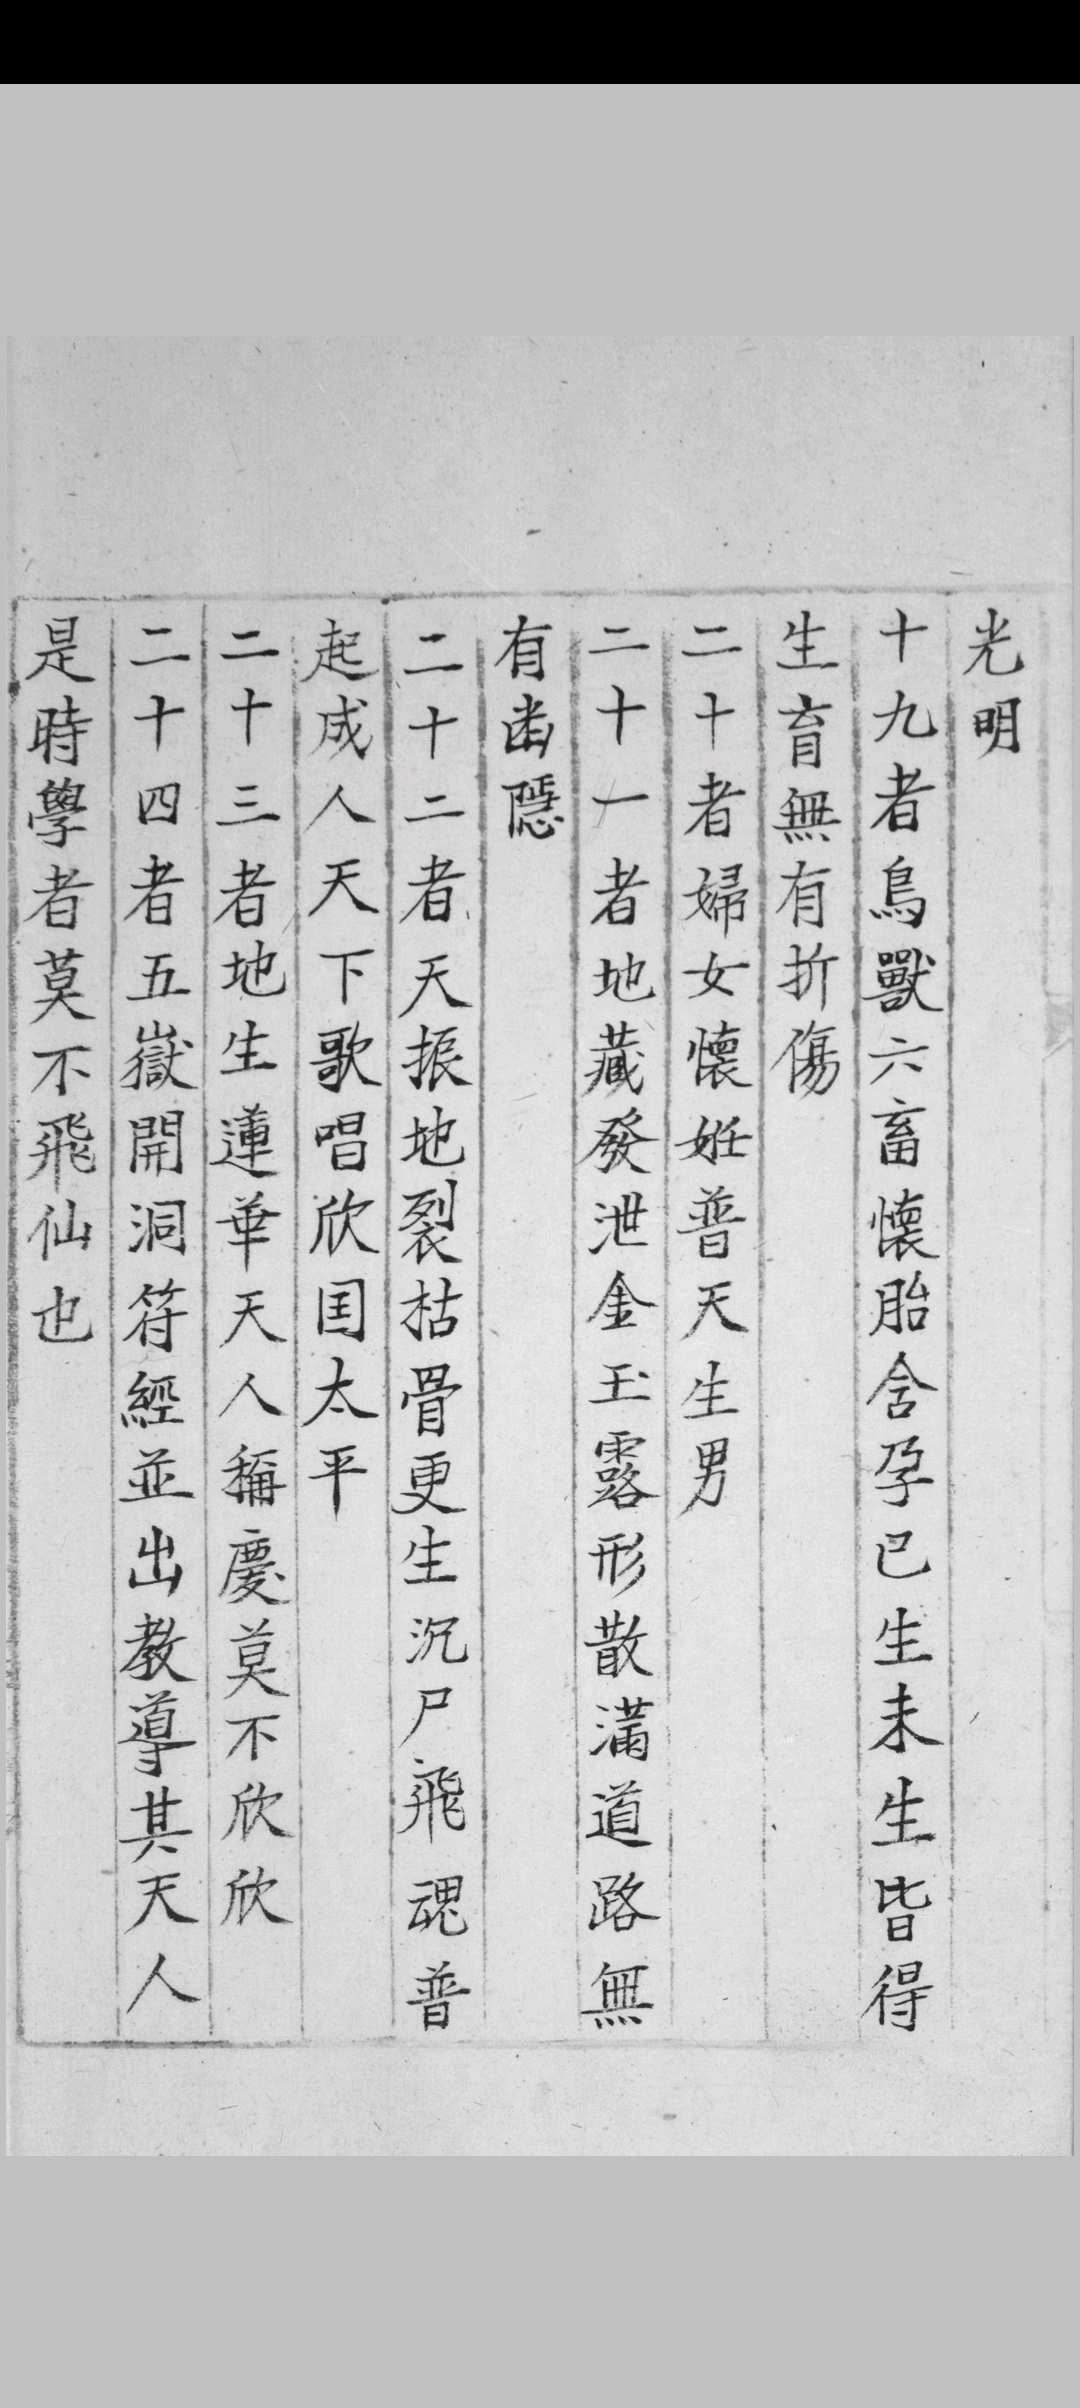 光明
十九者鳥獸六畜懷胎含孕已生未生皆得
生育無有折傷
二十者婦女懷妊普天生男
二十一者地藏發泄金玉露形散滿道路無
有幽隱
二十二者天振地裂枯骨更生沉尸飛魂普
起成人天下歌唱欣国太平
二十三者地生蓮華天人稱慶莫不欣欣
二十四者五嶽開洞符經並出教導其天人
是時學者莫不飛仙也